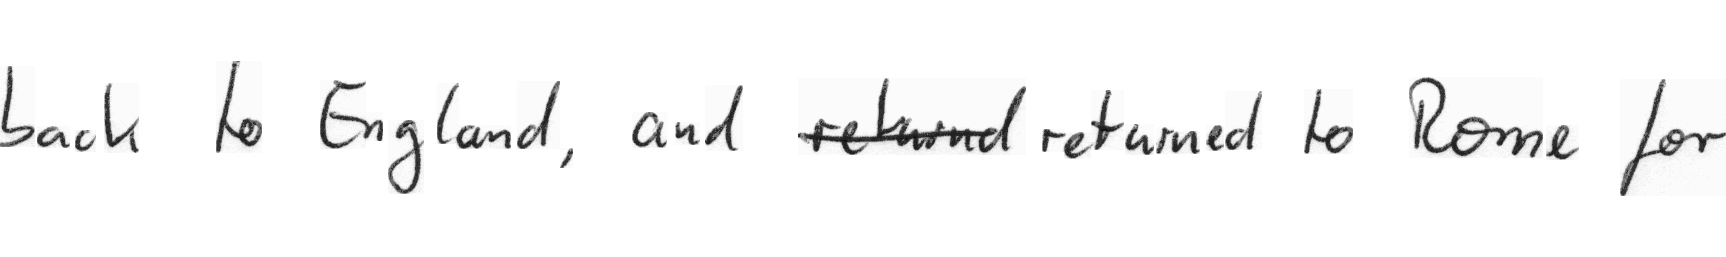 back to England, and returnd returned to Rome for